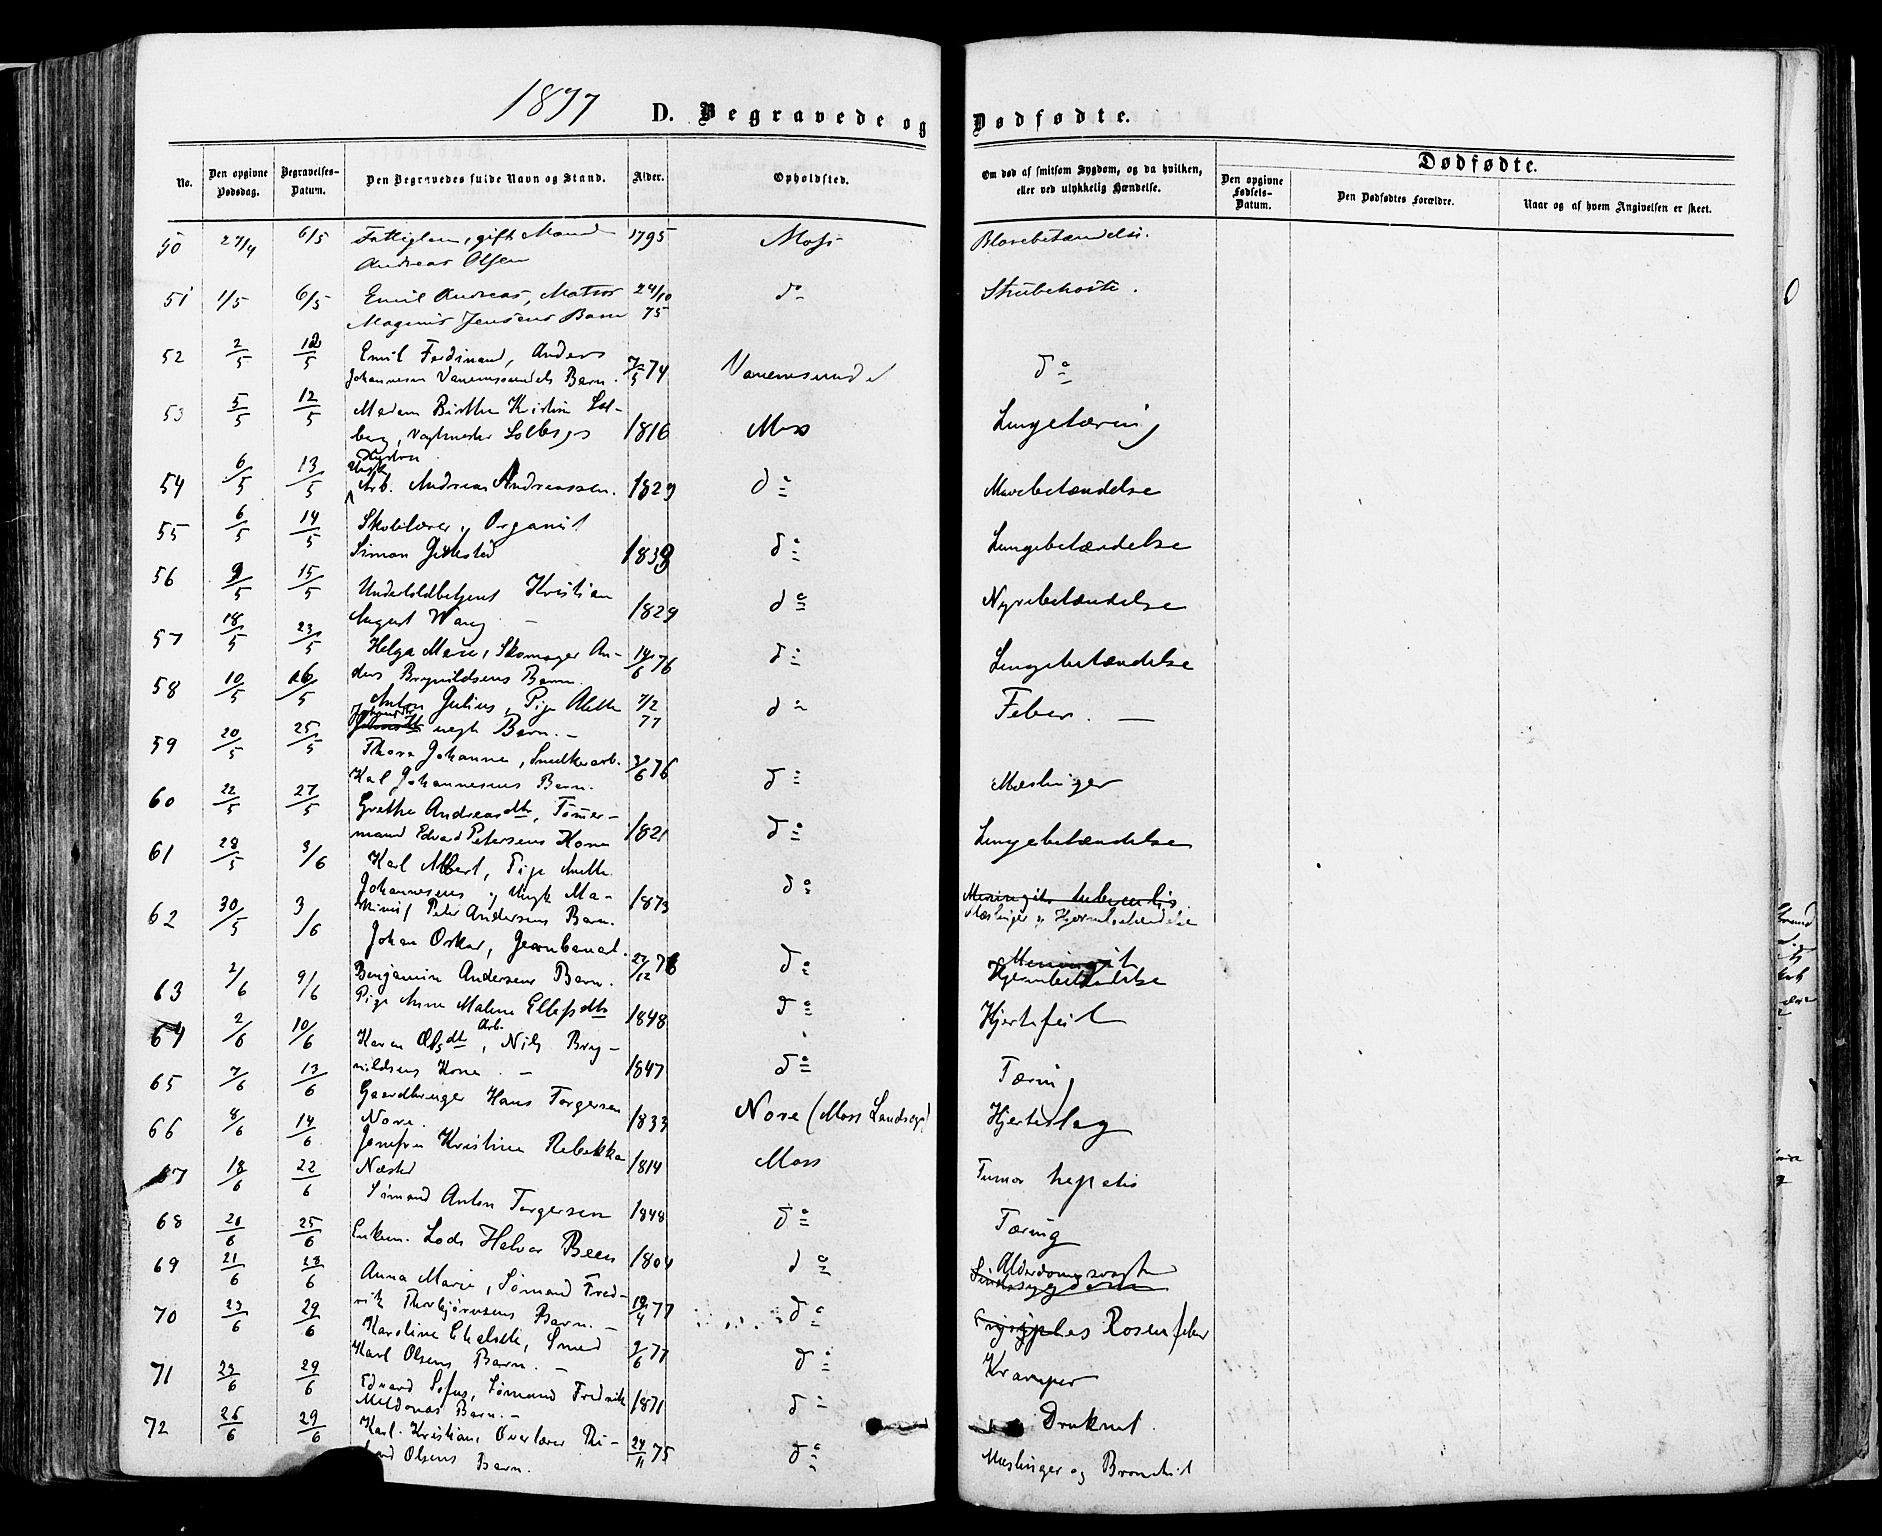 1877
D. Begravede og Dødfødte.
No. Den opgivne Dødsdag. Begravelses-Datum. Den Begravedes fulde Navn og Stand. Alder. Opholdsted. Om død af smitsom Sygdom, og da hvilken, eller ved ulykkelig Hændelse. Dødfødte.
Den opgivne Fødsels-Datum. Den Dødfødtes Forældre. Naar og af hvem Angivelsen er skeet.
50 27/4 6/5 Fattiglem, gift Mand 1795 Moss Blærebetændelse.
Andreas Olsen
51 1/5 6/5 Emil Andreas, Matros 24/10 do Strubehoste.
Magnus Jensens Barn 75
52 2/5 12/5 Emil Ferdinand, Anders
Johannesen Vanemsundets Barn. 7/5 74 Vanemsundet do
53 5/5 12/5 Madam Birthe Kristine Sol-
berg, Vagtmester Solbergs 1816 Moss Lungetæring
54 6/5 13/5 Ungk. Arb. Andreas Andreassen. 1829 do Mavebetændelse
55 6/5 14/5 Skolelærer og Organist
Simon 1839 do Lungebetændelse
56 9/5 15/5 Undertoldbetjent Kristian
August Wang 1829 do Nyrebetændelse
57 18/5 23/5 Helga Marie, Skomager An-
ders Brynildsens Barn. 14/6 76 do Lungebetændelse
58 10/5 26/5 Anton Julius, Pige Alette 7/2 77 do Feber.
uegte Barn.
59 20/5 25/5 Thora Johanne, Snedkerarb. 3/6 76
Karl Johannesens Barn. do Mæslinger
60 22/5 27/5 Grethe Andreasdtr, Tømer-
mand Edvard Petersens Kone 1821 do Lungebetændelse
61 28/5 3/6 Karl Albert, Pige Anette
Johannesens og Ungk. Ma- 1873 do Meningitis tuberculis
skinist Peter Andersens Barn. Mæslinger og Hjernebetændelse
62 30/5 3/6 Johan Oskar, Jernbanearb. 27/12 76 do Meningit
Benjamin Andersens Barn. Hjernebetændelse
63 2/6 9/6 Pige Anne Malene Ellefsdtr 1848 do Hjertefeil
64 2/6 10/6 Karen Olsdtr, Arb. Nils Bry-
nildsens Kone. 1847 do Tæring
65 7/6 13/6 Gaardbruger Hans Torgersen
Nore. 1833 Nore (Moss Landsogn) Hjerteslag
66 8/6 14/6 Jomfru Kristine Rebekka
Næsted 1814 Moss Tumor hepatis
67 18/6 22/6 Sømand Anton Torgersen 1848 do Tæring
68 20/6 25/6 Enkem. Lods Halvor Been 1804 do Alderdomssvaghed
69 21/6 28/6 Anna Marie, Sømand Fred-
rik Thorbjørnsens Barn. 19/4 77 do Rosenfeber
70 23/6 29/6 Karoline Charlotte, Smed
Karl Olsens Barn. 9/6 77 do Kramper
71 23/6 29/6 Edvard Sofus, Sømand Fredrik
Barn. 1871 do Druknet.
72 26/6 29/6 Karl Kristian, Overlærer
Olsens Barn. 24/11 75 do Mæslinger og Bronchit